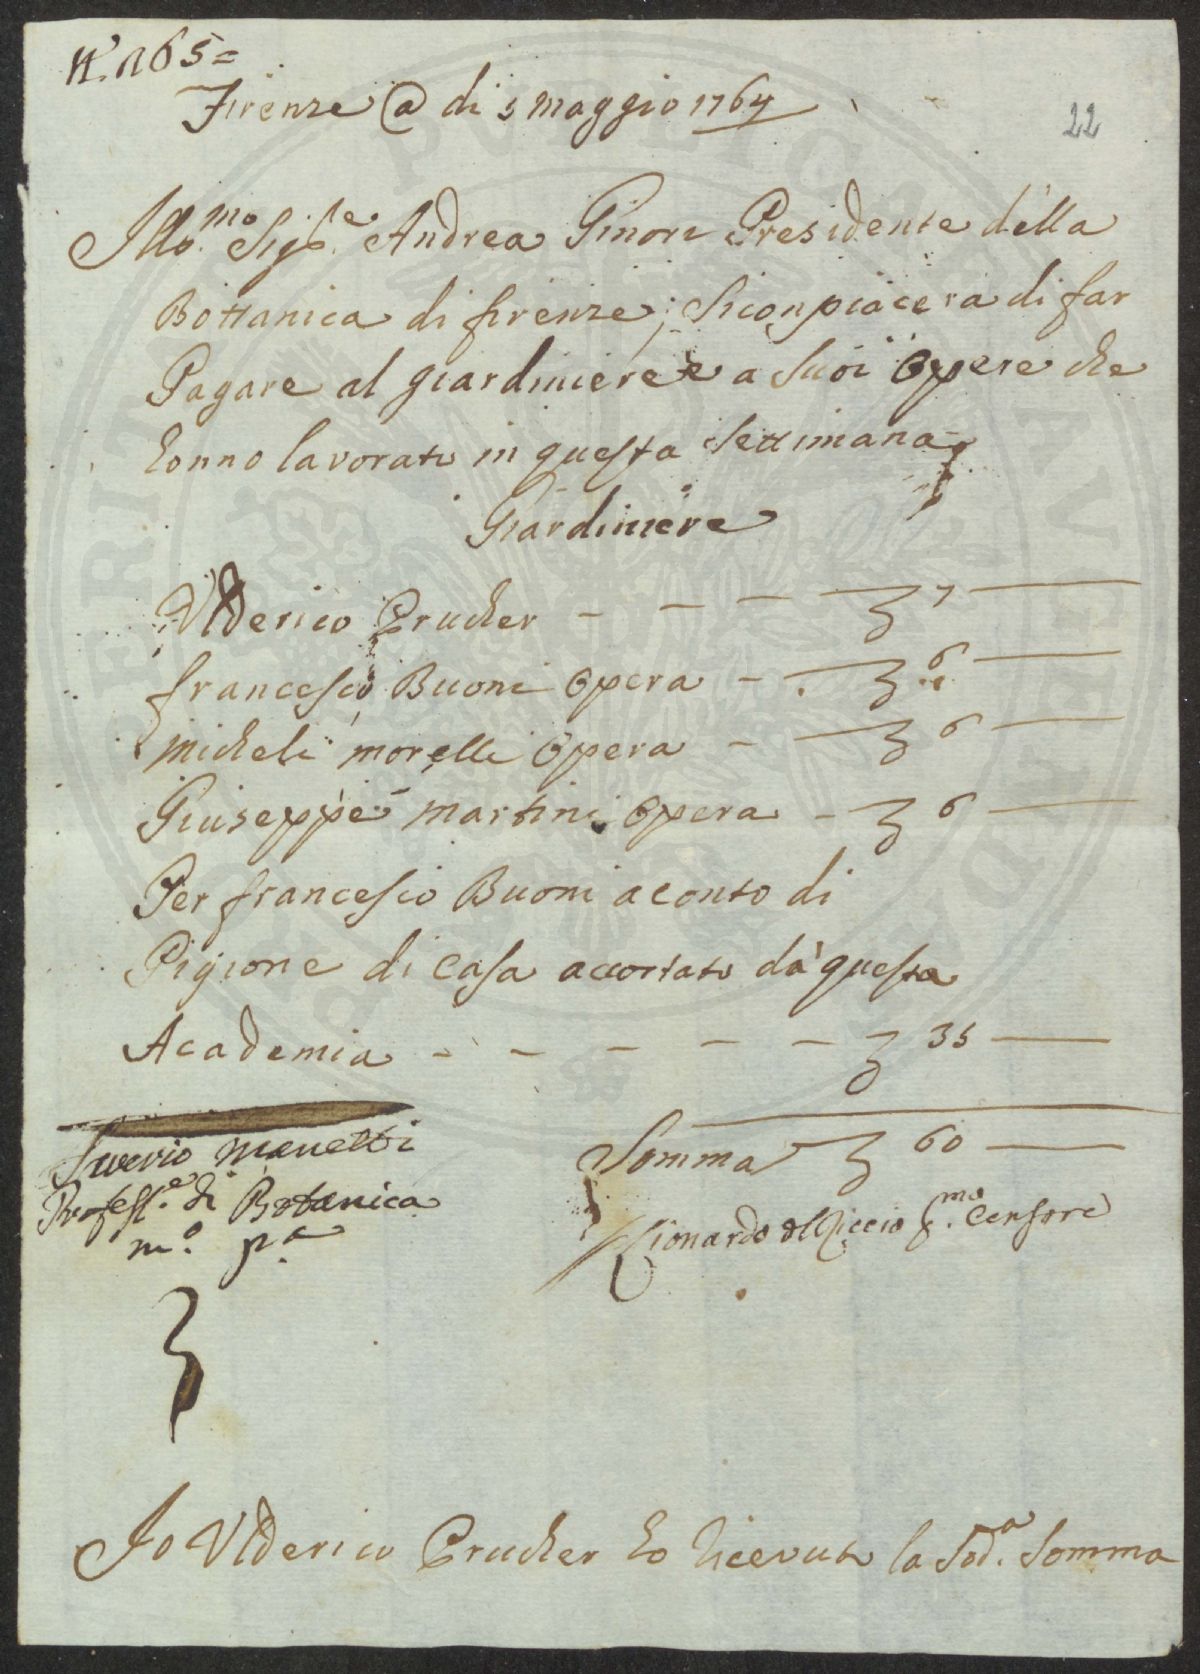 N. 165=
Firenze @ di 5 Maggio 1764
22
Illo.mo Sigr.e Andrea Ginori Presidente della
Bottanica di firenze; Si conpiacera di far
Pagare al giardiniere e a Suoi Opere che
honno lavorato in questa Settimana
Giardiniere
Vlderico Prucher - - - 7
francescio Buoni Opera - 6
Micheli morelli Opera - 6
Giuseppe martini Opera - 6
Per francescio Buoni a conto di
Pigione di Casa accortato da questa
Academia - - - - - 35
Saverio Manetti
Profess.e di Botanica
m.o p.a
Somma 60
Lionardo del Riccio p.mo Censore
Io Vlderico Prucher ho Ricevuto la Sod.a Somma
PERIMENTALE
PUBLICA